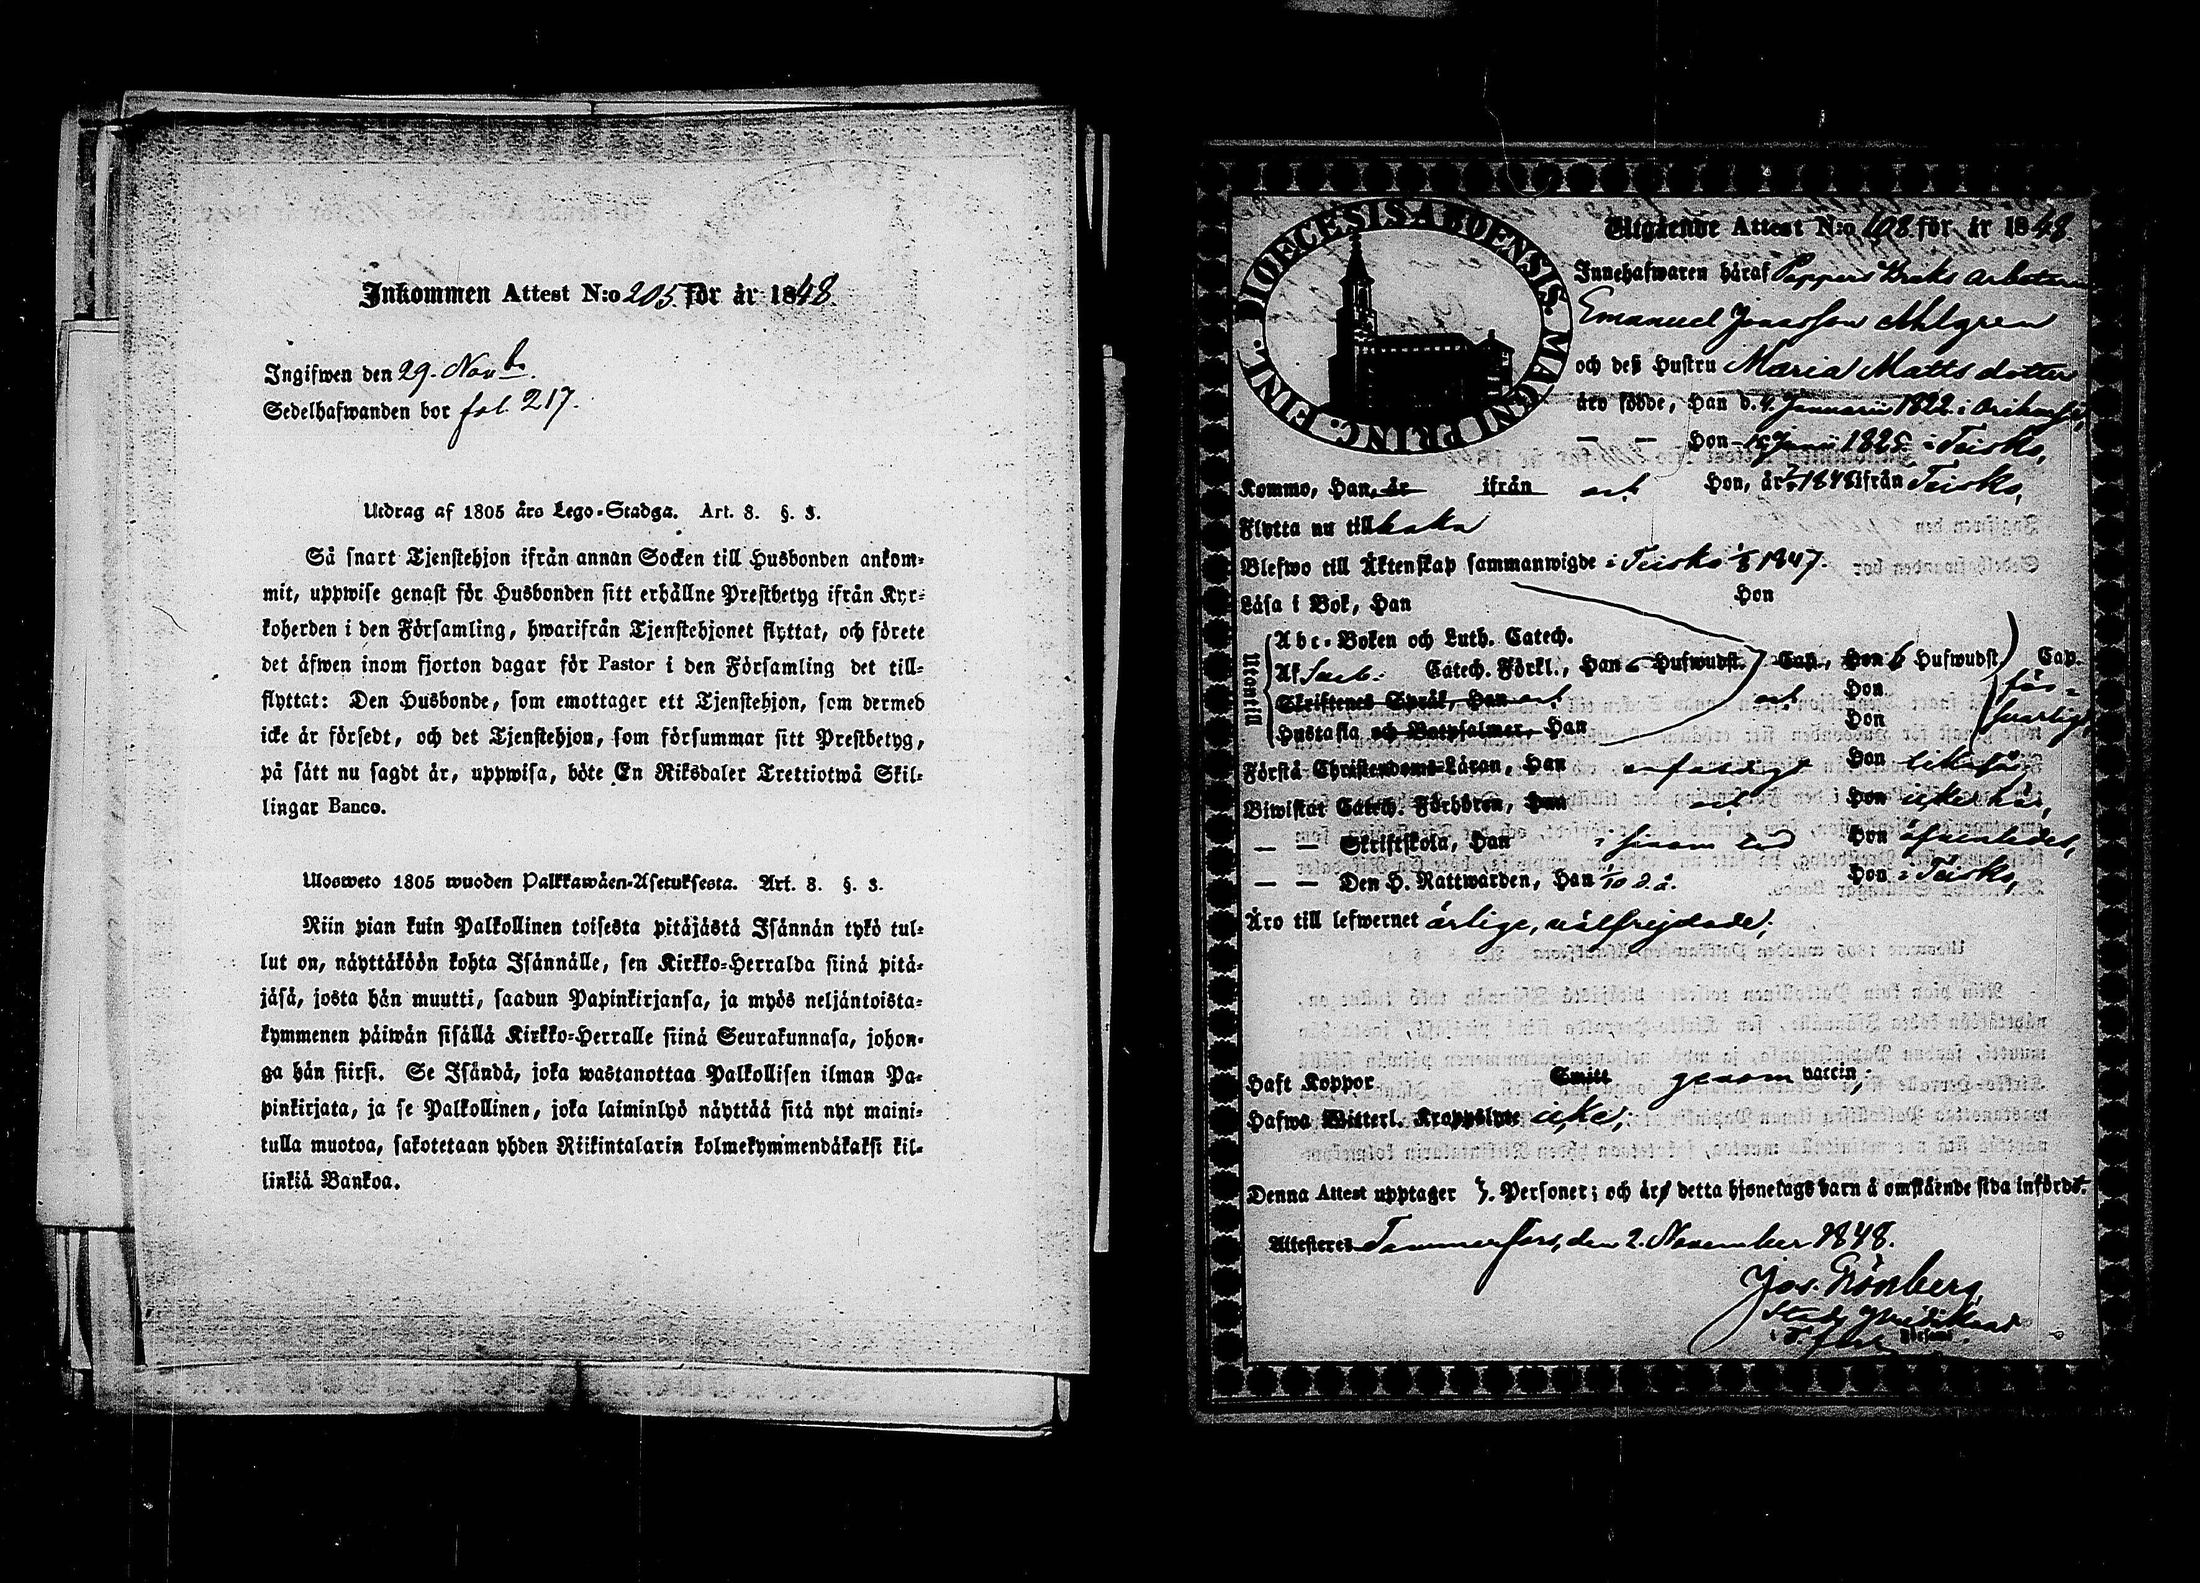 Inkommen Attest N:o 205. för år 1848
Ingifwen den 29. Novb.
Sedelhafwanden bor fol. 217.
Utdrag af 1805 års Lego-Stadga. Art. 8. §. 3.
Så snart Tjenstehjon ifrån annan Socken till Husbonden ankom-
mit, uppwise genast för Husbonden sitt erhållne Prestbetyg ifrån Kyr-
koherden i den Församling, hwarifrån Tjenstehjonet flyttat, och förete
det äfwen inom fjorton dagar för Pastor i den Församling det till-
flyttat: Den Husbonde, som emottager ett Tjenstehjon, som dermed
icke är försedt, och det Tjenstehjon, som försummar sitt Prestbetyg,
på sätt nu sagdt är, uppwisa, böte En Riksdaler Trettiotwå Skil-
lingar Banco.
Ulosweto 1805 wuoden Palkkawäen-Asetuksesta. Art. 8. §. 3.
Niin pian kuin Palkollinen toisesta pitäjästä Isännän tykö tul-
lut on, näyttäköön kohta Isännälle, sen Kirkko-Herralda siinä pitä-
jäsä, josta hän muutti, saadun Papinkirjansa, ja myös neljäntoista-
kymmenen päiwän sisällä Kirkko-Herralle siinä Seurakunnasa, johon-
ga hän siirsi. Se Isändä, joka wastanottaa Palkollisen ilman Pa-
pinkirjata, ja se Palkollinen, joka laiminlyö näyttää sitä nyt maini-
tulla muotoa, sakotetaan yhden Riikintalarin kolmekymmendäkaksi kil-
linkiä Bankoa.
DIOECESIS ABOENSIS. MAGNI PRINC. FINL.
Utgående Attest N:o 108 för år 1848.
Innehafwaren häraf Pappers Bruks arbetaren
Emanuel Jonasson Ahlgren
och deß Hustru Maria Matts dotter
äro födde, Han d. 4. Januarii 1822 i Orihvesi,
— — Hon Junii i Teisko,
Kommo, Han, är ifrån och Hon, år 1848 ifrån Teisko,
Flytta nu till
Blefwo till Äktenskap sammanwigde i Teisko 1847.
Läsa i Bok, Han Hon
Utantill
Abc-Boken och Luth. Catech.
Af Catech. Förkl., Han 6 Hufwudst. Cap., Hon 6 Hufwudst. Cap.
Skriftenes Språk, Han och och Hon för-
Hustafla och Botpsalmer, Han Hon swarligt
Förstå Christendoms-Läran, Han enfaldigt Hon likaså,
Biwistat Catech. Förhören, Han och Hon icke här,
— — Skriftskola, Han i sinom tid Hon äfvenledes,
— — Den H. Nattwarden, Han 1/10 d. å. Hon i Teisko,
Äro till lefwernet ärlige, välfrejdade;
Haft Koppor Smitt genom vaccin;
Hafwa Witterl. Kroppslyte icke;
Denna Attest upptager 3. Personer; och äro detta hjonelags barn å omstående sida införde.
Attesteres Tammerfors, den 2. November 1848.
Jos. Grönberg,